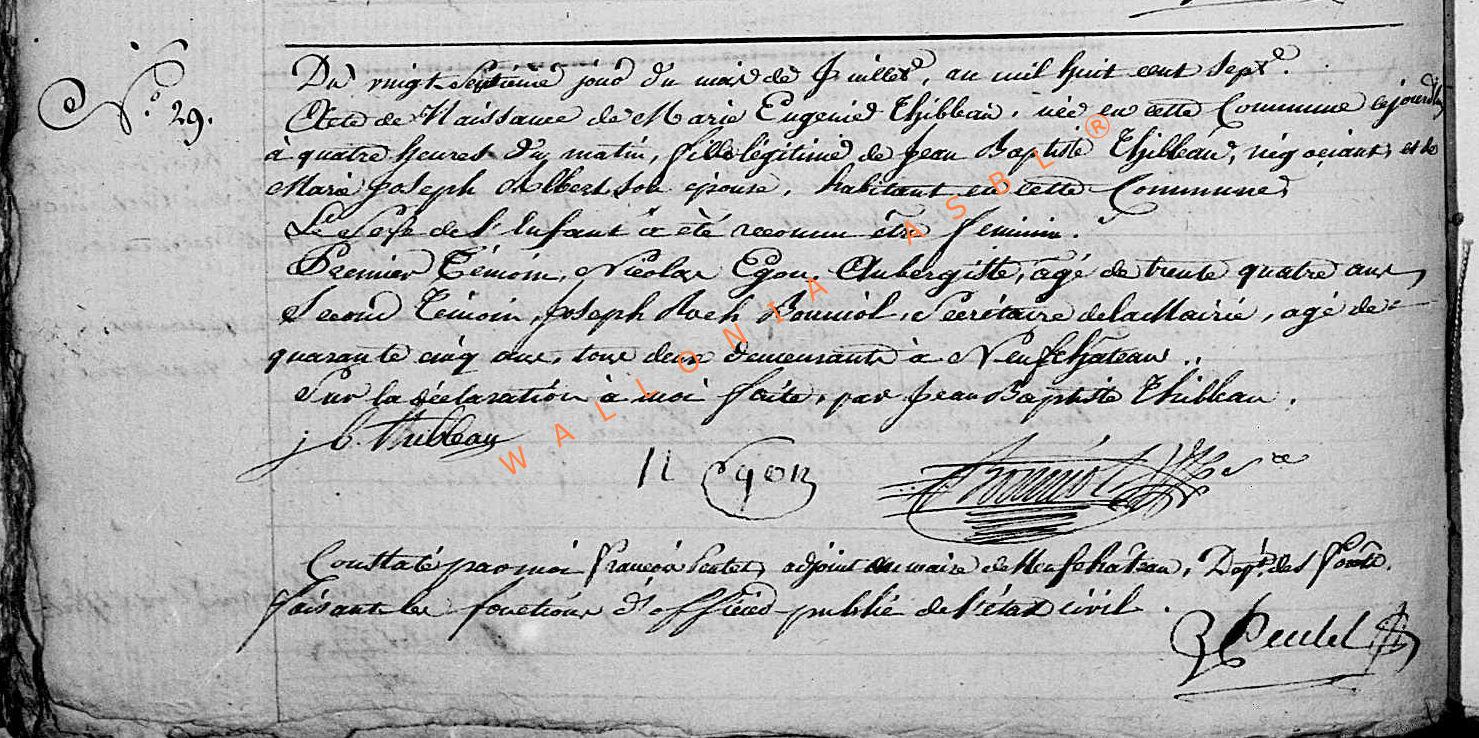 N.º 29.
Du vingt Septième jour du mois de Juillet, au mil huit cent Sept.
Acte de Naissance de Marie Eugenie Thibleau, née en cette Commune cejourd'hui
à quatre heures du matin, fille légitime de Jean Baptiste Thibleau, négociant, et de
Marie Joseph Albert son epouse, habitant en cette Commune,
Le Sexe de l'Enfant a été reconnu être féminin.
Premier Témoin, Nicolas Egon, Aubergiste, agé de trente quatre ans,
Second Témoin, Joseph Roch Bouniol, Secrétaire de la Mairie, agé de
quarante cinq ans, tous deux demeurants à Neufchâteau.
Sur la déclaration à moi faite, par Jean Baptiste Thibleau.
j b thibleau
N Egon
Bouniol
Constaté par moi François adjoint au maire de Neufchâteau, Dép.t des Forêts.
faisant les fonctions d'officier public de l'état civil.
WALLONIA ASBL ®